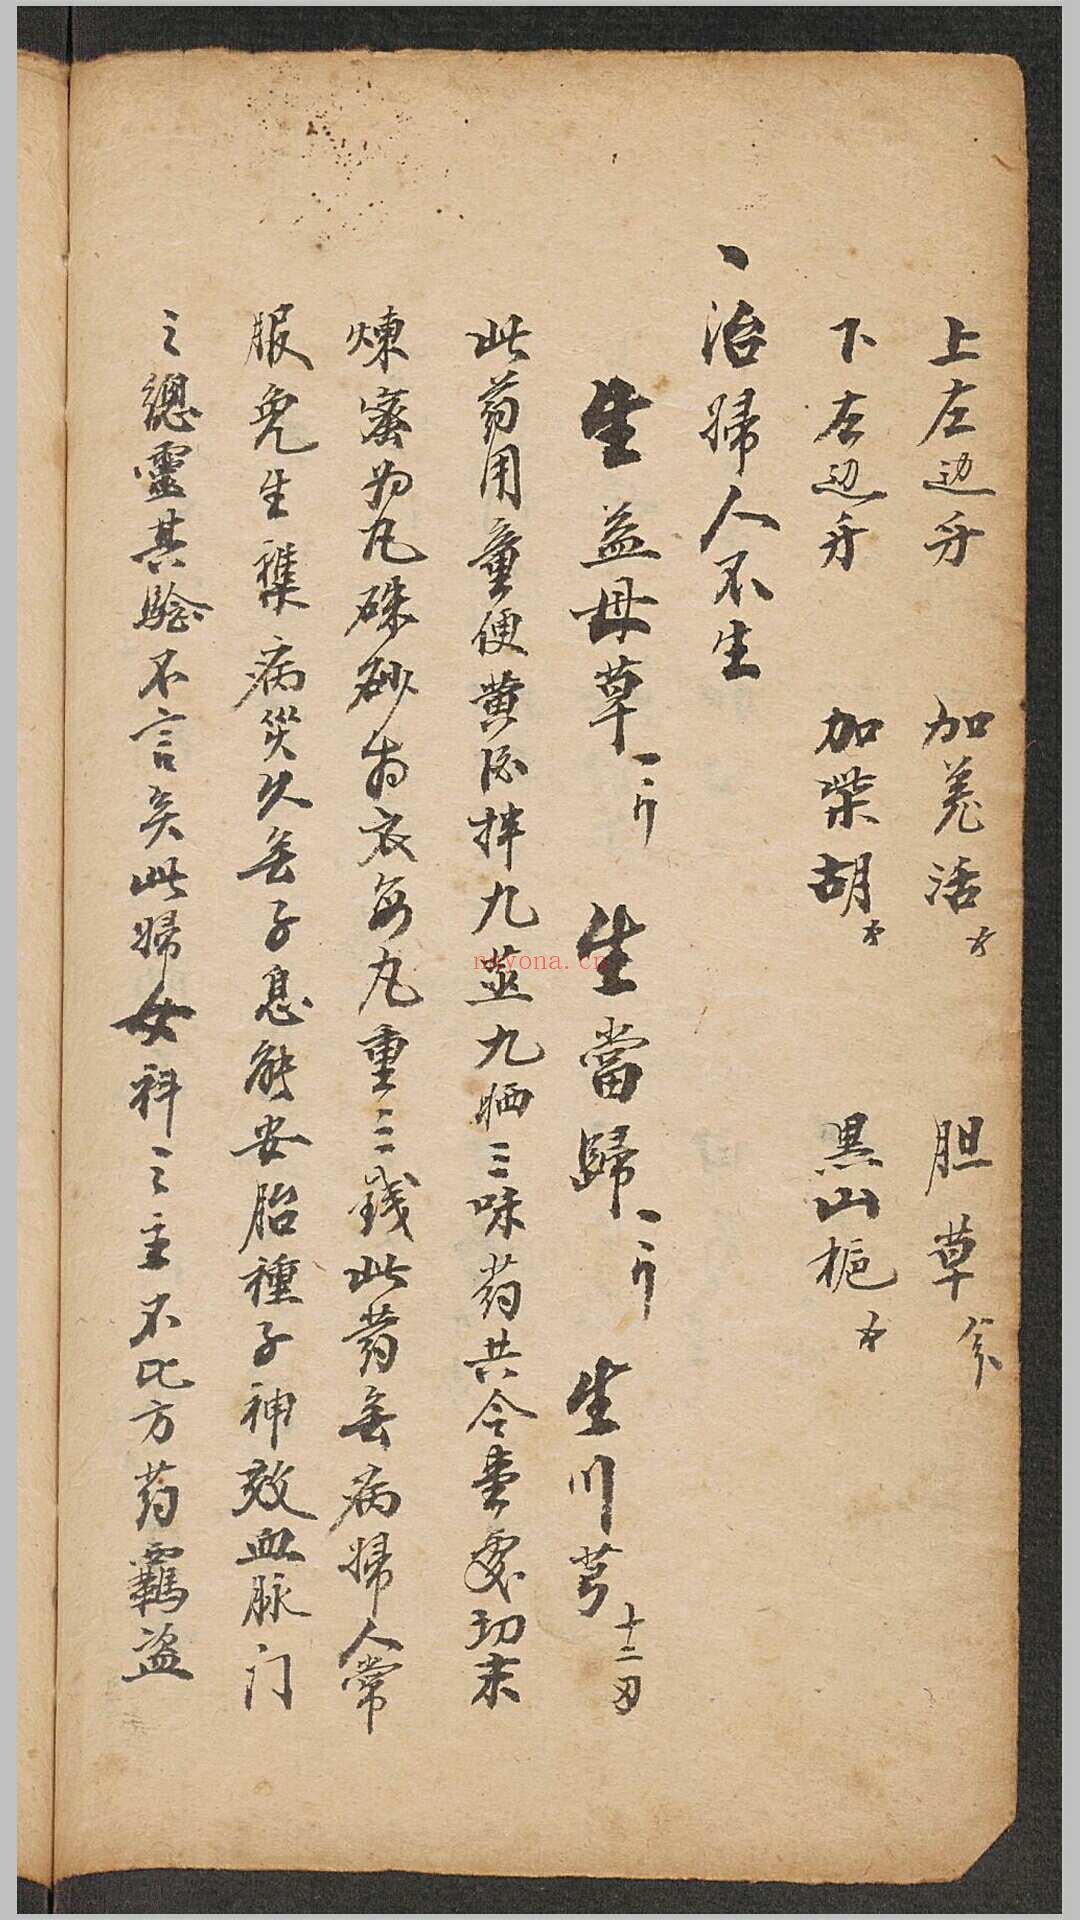 上左边牙 加羌活 胆草
下左边牙 加柴胡 黑山栀
、治婦人不生
生益母草一斤 生當歸一斤 生川芎十二刃
此药用童便黄酒拌九蒸九晒三味药共合一處切末
煉蜜为丸硃砂为衣每丸重三錢此药無病婦人常
服免生雜病災久無子息能安胎種子神效血脉门
之總靈其驗不言矣此婦女科之主不比方药覊盗
nayona.cn